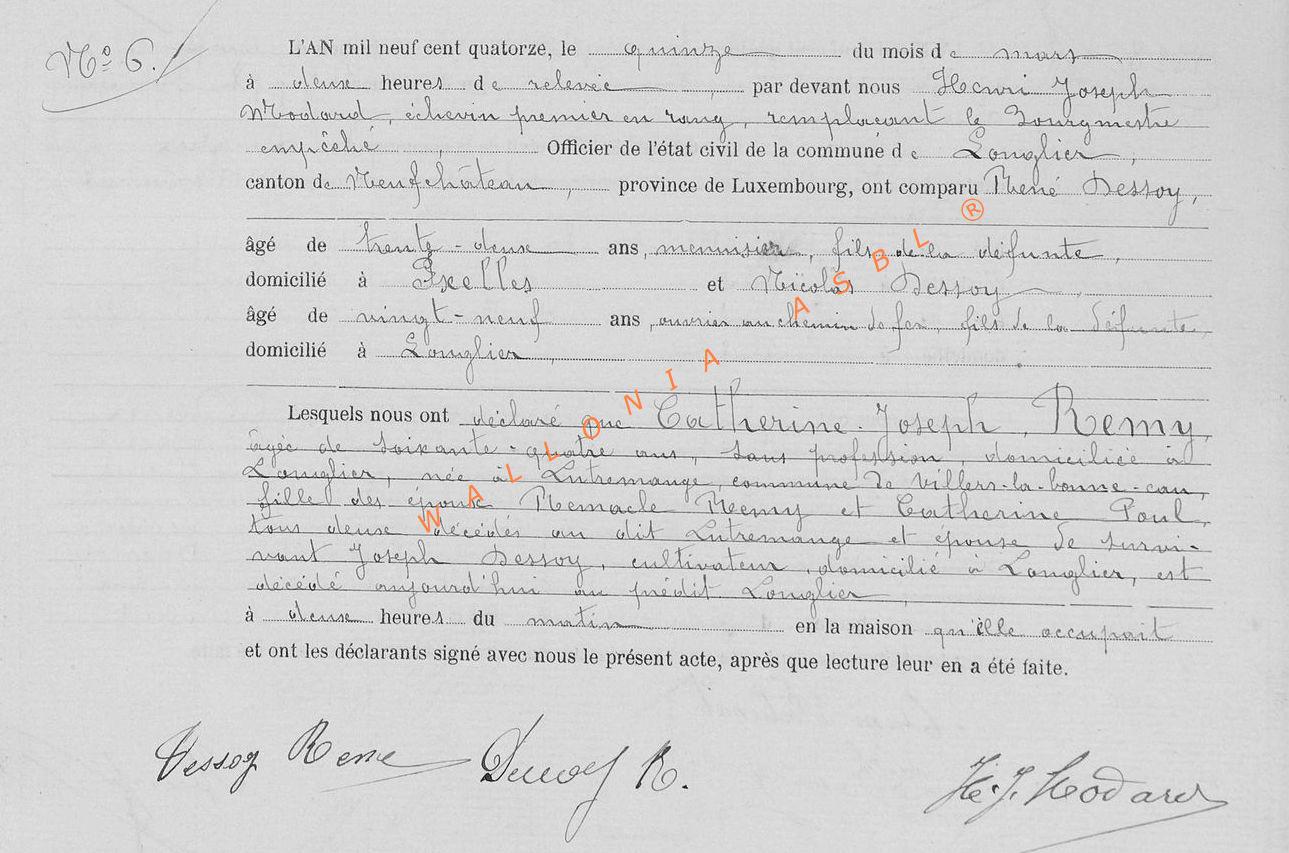 Nº 6.
L'AN mil neuf cent quatorze, le quinze du mois de mars
à deux heures de relevée, par devant nous Henri Joseph
Modard, échevin premier en rang, remplaçant le Bourgmestre
empêché, Officier de l'état civil de la commune de Longlier,
canton de Neufchâteau, province de Luxembourg, ont comparu René Dessoy,
âgé de trente-deux ans, menuisier, fils de la défunte,
domicilié à Ixelles et Nicolas Dessoy
âgé de vingt-neuf ans, ouvrier au chemin de fer, fils de la défunte,
domicilié à Longlier,
Lesquels nous ont déclaré que Catherine-Joseph Remy,
âgée de soixante-quatre ans, sans profession, domiciliée à
Longlier, née à Lutremange, commune de Villers-la-bonne-eau,
fille des époux Remacle Remy et Catherine Poul,
tous deux décédés au dit Lutremange et épouse de survi-
vant Joseph Dessoy, cultivateur, domicilié à Longlier, est
décédé aujourd'hui au prédit Longlier,
à deux heures du matin en la maison qu'elle occupait
et ont les déclarants signé avec nous le présent acte, après que lecture leur en a été faite.
Dessoy Rene Dessoy N. H. J. Modard
WALLONIA ASBL ®